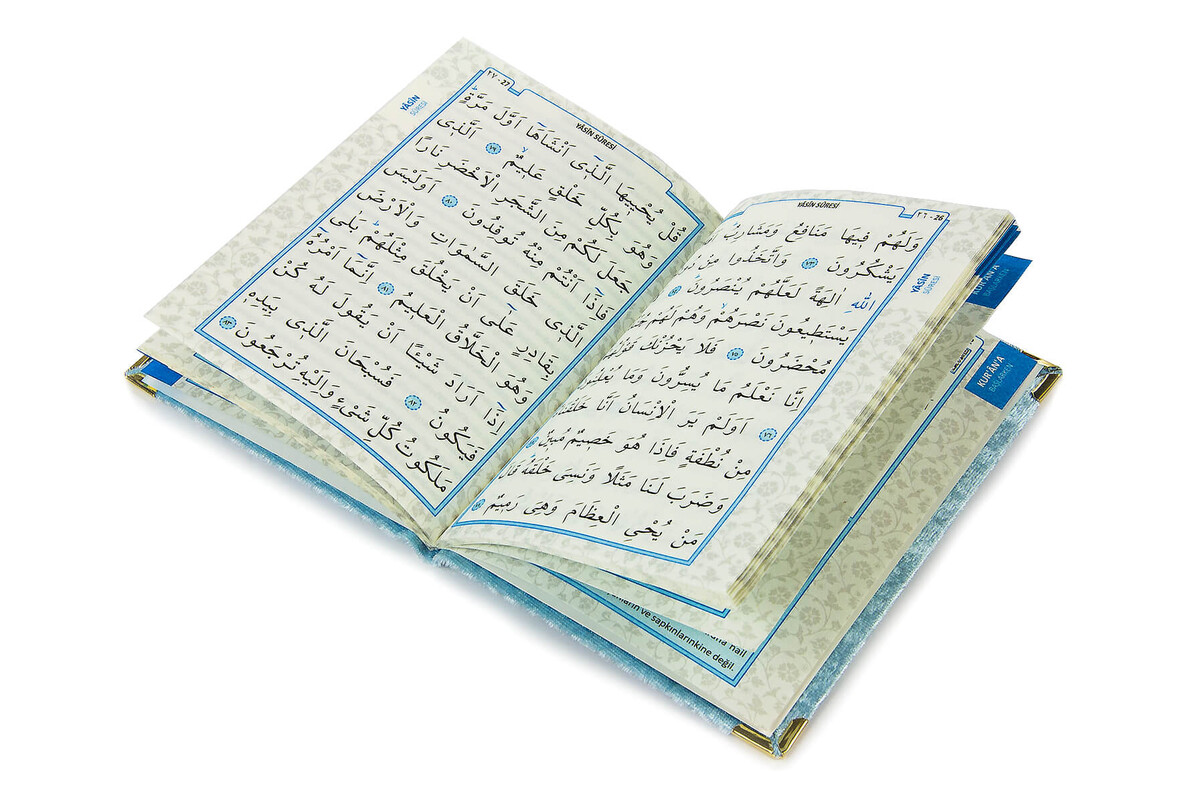 YÂSÎN SÛRESİ
٢٦ - 26
YÂSÎN
SÛRESİ
وَلَهُمْ فِيهَا مَنَافِعُ وَمَشَارِبُ
يَشْكُرُونَ ﴿٧٣﴾ وَاتَّخَذُوا مِنْ
اللّٰهِ اٰلِهَةً لَعَلَّهُمْ يُنْصَرُونَ ﴿٧٤﴾
يَسْتَطِيعُونَ نَصْرَهُمْ وَهُمْ لَهُمْ
مُحْضَرُونَ ﴿٧٥﴾ فَلَا يَحْزُنْكَ
اِنَّا نَعْلَمُ مَا يُسِرُّونَ وَمَا
﴿٧٦﴾ اَوَلَمْ يَرَ الْاِنْسَانُ اَنَّا
مِنْ نُطْفَةٍ فَاِذَا هُوَ خَصِيمٌ مُبِينٌ ﴿٧٧﴾
وَضَرَبَ لَنَا مَثَلًا وَنَسِىَ خَلْقَهُ
مَنْ يُحْيِى الْعِظَامَ وَهِىَ رَمِيمٌ ﴿٧٨﴾
٢٧ - 27
YÂSÎN SÛRESİ
YÂSÎN
SÛRESİ
قُلْ يُحْيِيهَا الَّذِى اَنْشَاَهَا اَوَّلَ مَرَّةٍ
وَهُوَ بِكُلِّ خَلْقٍ عَلِيمٌ ﴿٧٩﴾ اَلَّذِى
جَعَلَ لَكُمْ مِنَ الشَّجَرِ الْاَخْضَرِ نَارًا
فَاِذَا اَنْتُمْ مِنْهُ تُوقِدُونَ ﴿٨٠﴾ اَوَلَيْسَ
الَّذِى خَلَقَ السَّمٰوَاتِ وَالْاَرْضَ
بِقَادِرٍ عَلٰى اَنْ يَخْلُقَ مِثْلَهُمْ بَلٰى
وَهُوَ الْخَلَّاقُ الْعَلِيمُ ﴿٨١﴾ اِنَّمَا اَمْرُهُ
اِذَا اَرَادَ شَيْئًا اَنْ يَقُولَ لَهُ كُنْ
فَيَكُونُ ﴿٨٢﴾ فَسُبْحَانَ الَّذِى بِيَدِهِ
مَلَكُوتُ كُلِّ شَىْءٍ وَاِلَيْهِ تُرْجَعُونَ ﴿٨٣﴾
KUR'ÂN'A
BAŞLARKEN
KUR'ÂN'A
BAŞLARKEN
nail
ve sapkınlarınkine değil.